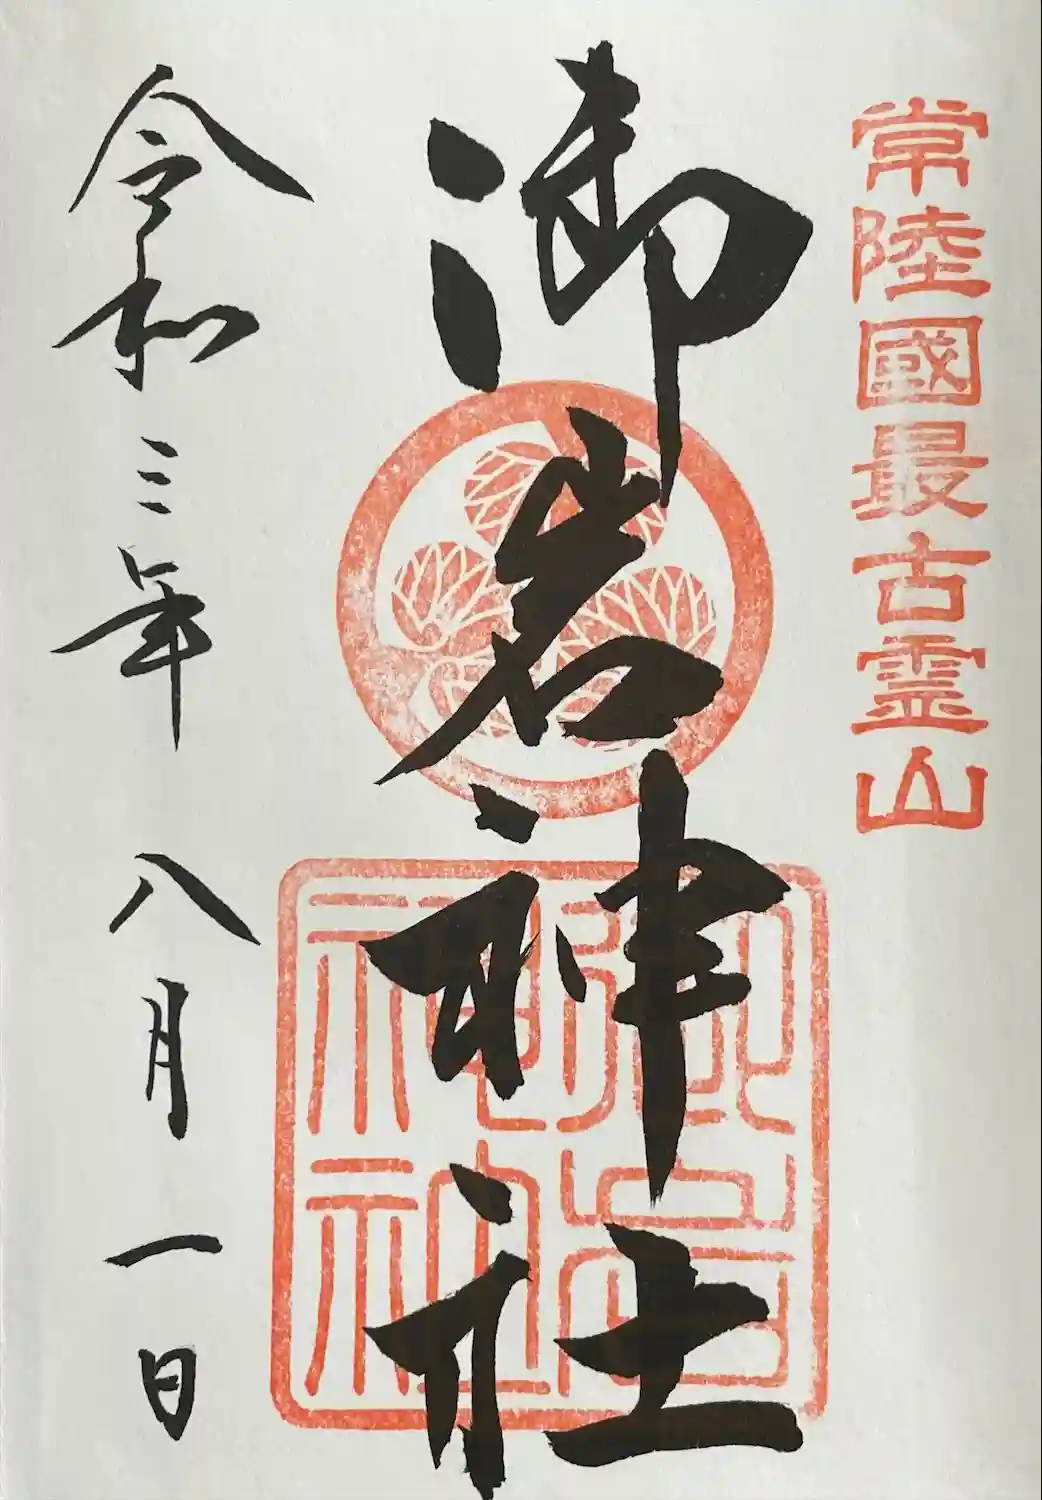 常陸國最古霊山
御岩神社
御岩神社
令和三年八月一日